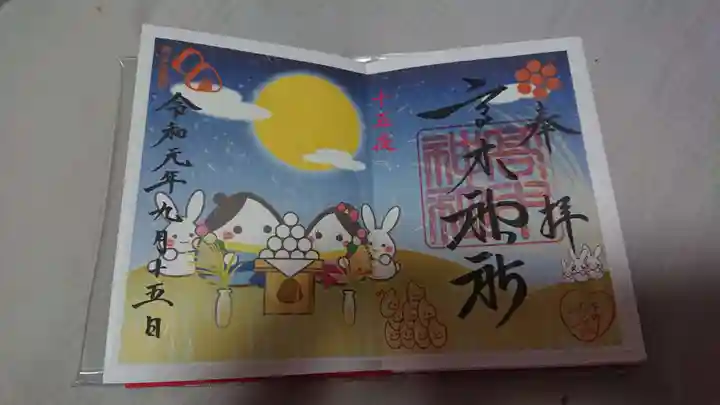 奉拝
高木神社
十五夜
令和元年九月十五日